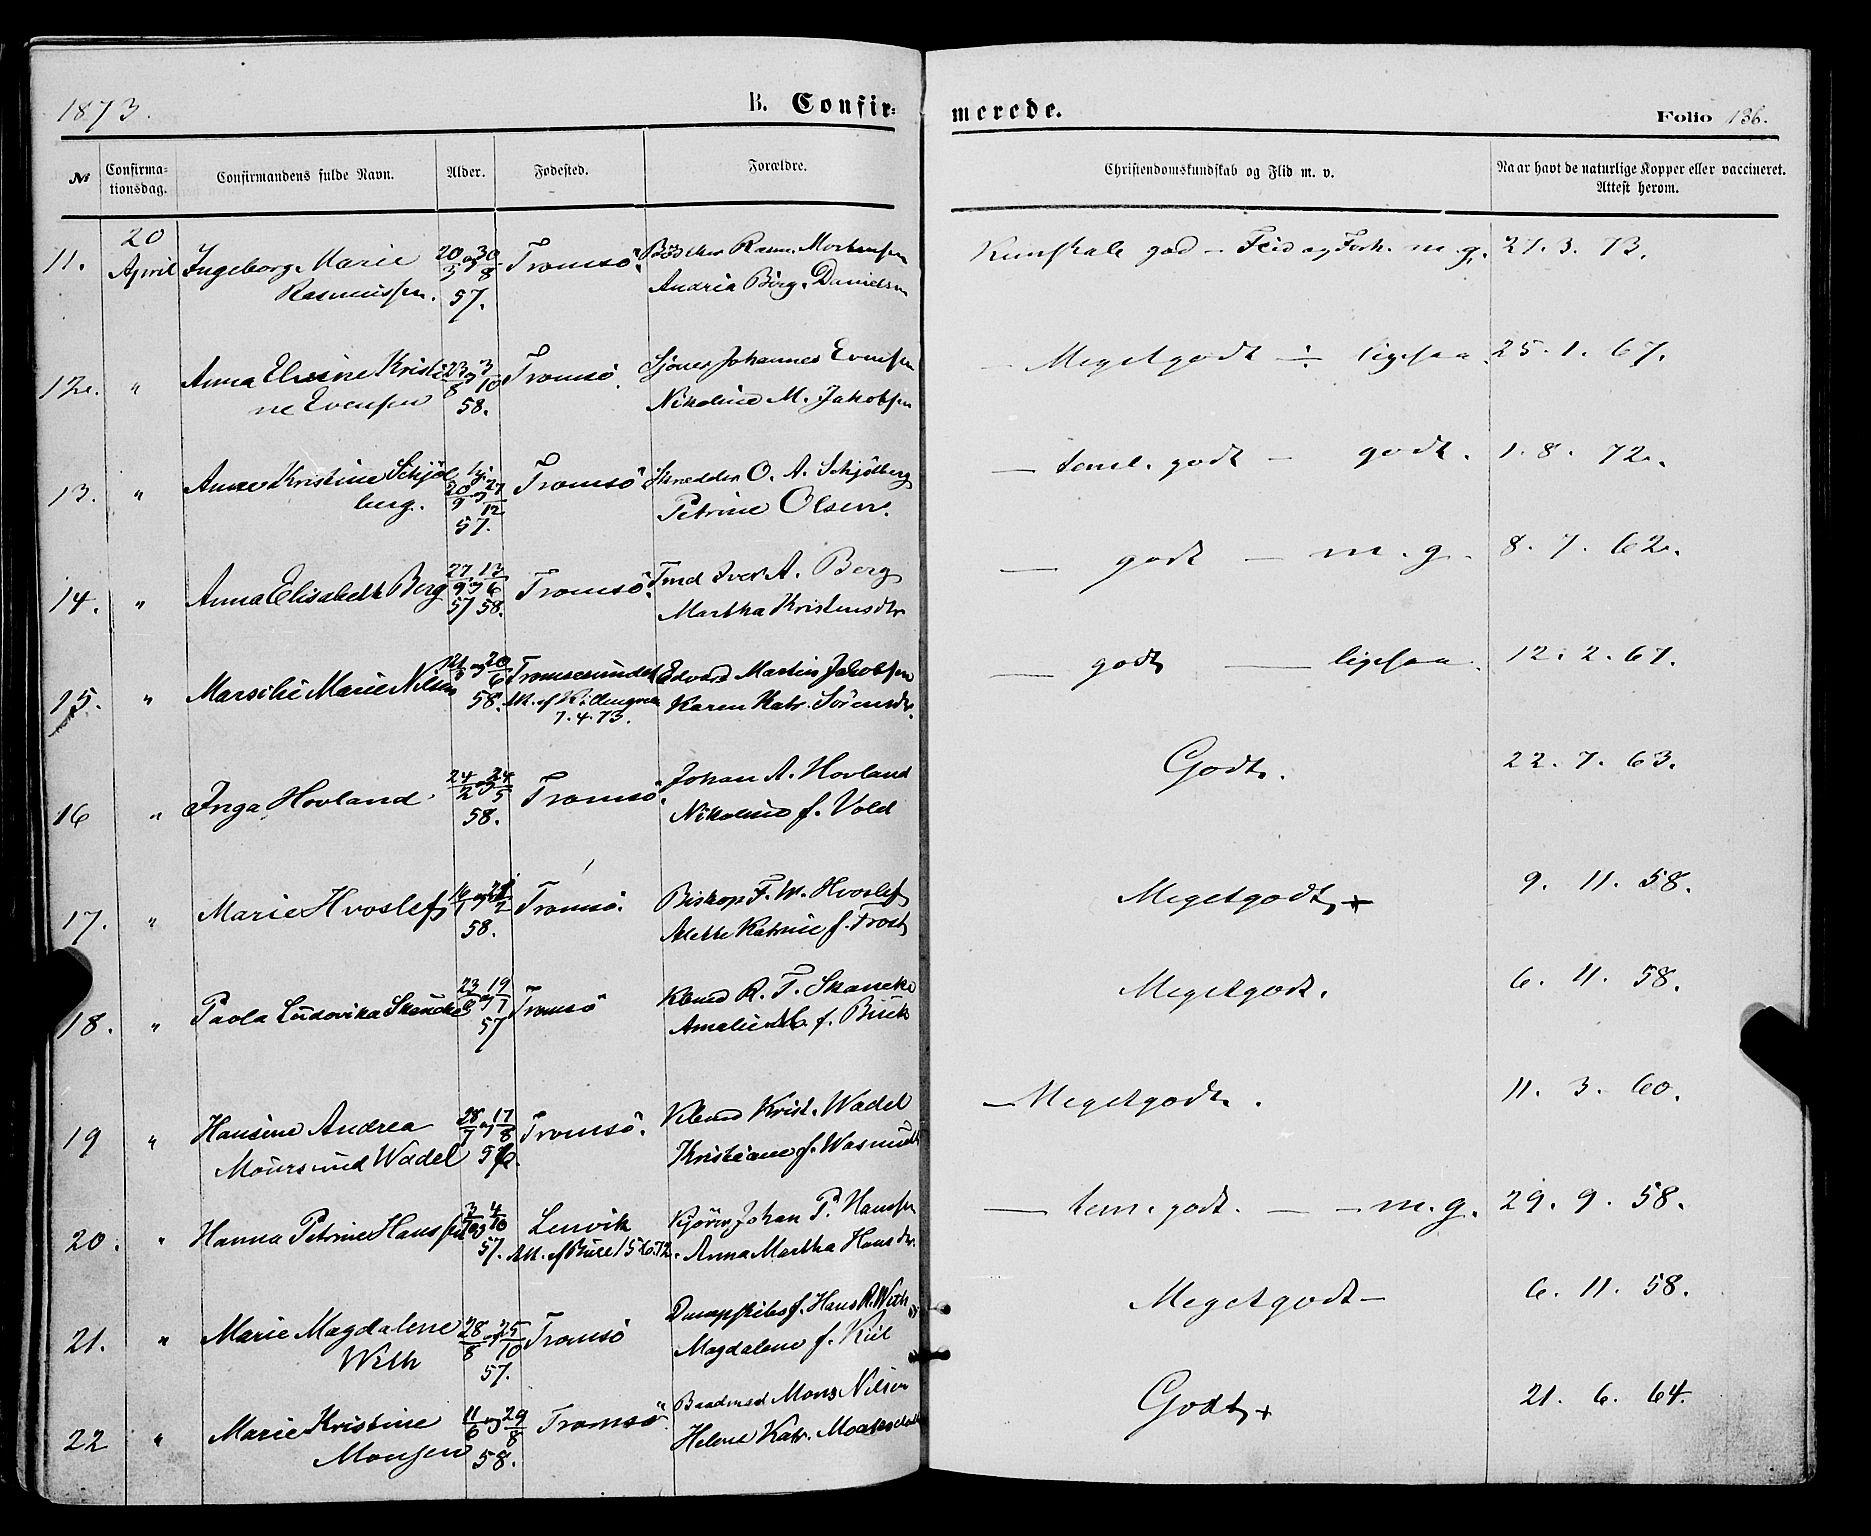 1873.
B. Confir-
merede.
Folio 136.
No
Confirma-
tionsdag.
Confirmandens fulde Navn.
Alder.
Fødested.
Forældre.
Christendomskundskab og Flid m. v.
Naar havt de naturlige Kopper eller vaccineret.
Attest herom.
11. 20 April Ingeborg Marie 20/5 og 30/8 Tromsö. Bödker Rasm. Mortensen Kundskab god - Flid og Forh. m. g. 27. 3. 73.
Rasmussen. 57. Andrea Berg. Danielsen
12. " Anna Elisine Kristi- 23/8 og 3/10 Tromsö. Johannes Evensen - Megetgodt ÷ ligesaa 25. 1. 67.
ne Evensen 58. Nikoline M. Jakobsen
13. " Anne Kristine Schjöl- 20/9 og 27/12 Tromsö Skredder O. A. Schjölberg - teml. godt - godt. 1. 8. 72.
berg. 57. Petrine Olsen.
14. " Anna Elisabeth Berg 27/9 og 13/6 Tromsö. Iver A. Berg - godt - m. g. 8. 7. 62.
57 58. Martha Kristensdtr
15. " Marsilie Marie Nilsen og 20/6 Tromsesundet Edvard Martin Jakobsen - godt - ligesaa. 12. 2. 67.
58. Att. af 7. 4. 73. Karen Katr. Sörensdr.
16 " Inga Hovland 24/2 og 24/5 Tromsö. Johan A. Hovland Godt. 22. 7. 63.
58. Nikoline f. Vold
17. " Marie Hvoslef 16/1 og 21/2 Tromsö. Biskop F. W. Hvoslef Megetgodt + 9. 11. 58.
58. Alette Katrine f. Frost
18. " Paola Ludovika Skancke 23/6 og 19/7 Tromsö Kbmd R. T. Skancke Megetgodt. 6. 11. 58.
57 Amalie f. Buck
19 " Hansine Andrea og 17/8 Tromsö. Kbmd Krist. Wadel - Megetgodt. 11. 3. 60.
Moursund Wadel Kristiane f. Wasmuth
20. " Hanna Petrine Hansen og 4/10 Lenvik Johan P. Hansen - teml. godt. - - m. g. 29. 9. 58.
57. Att. af Anna Martha Hansdr.
21. " Marie Magdalene 28/8 og 25/10 Tromsö Dampskibsf. Hans R. With Megetgodt - 6. 11. 58.
With 57. Magdalene f. Kiil
22 " Marie Kristine 11/6 og 29/8 Tromsö Baadsmd Mons Nilsen Godt + 21. 6. 64.
Monsen 58. Helene Katr.